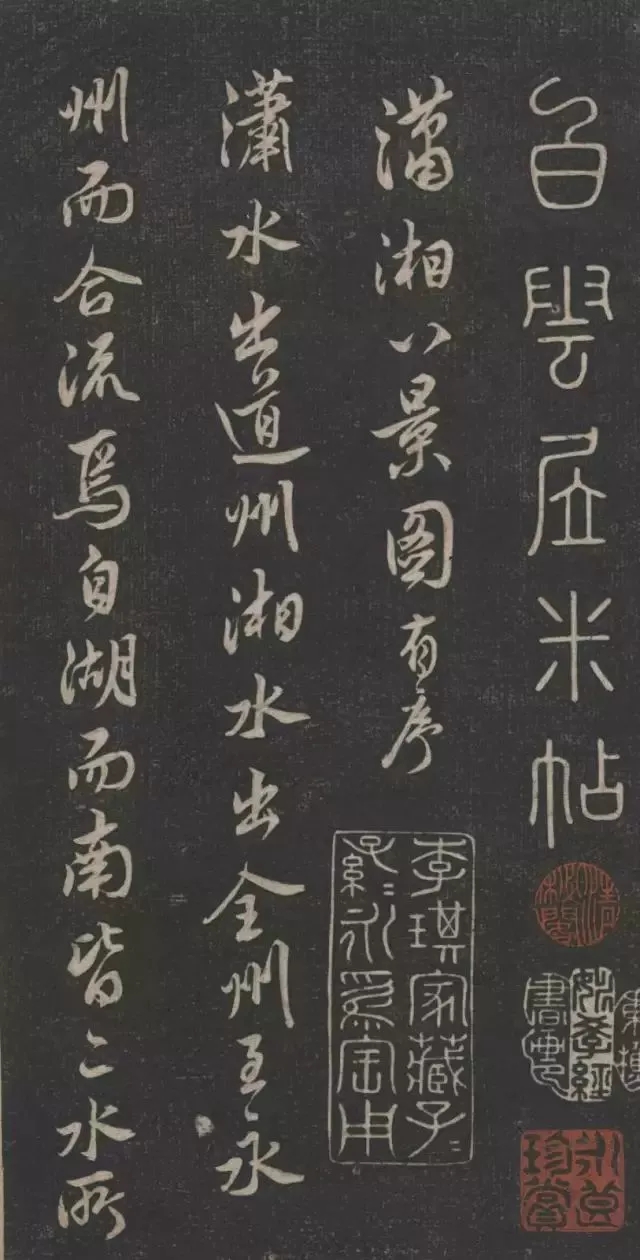 白雲居米帖
瀟湘八景图有序
李琪家藏子〻
孫〻永為寶用
瀟水出道州湘水出全州至永
州而合流焉自湖而南皆二水所